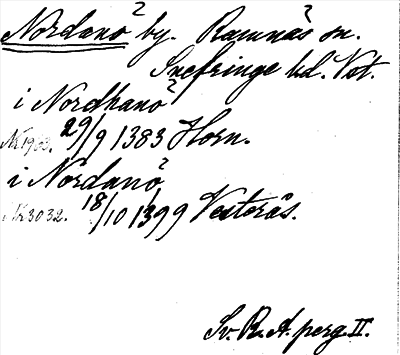 Nordanö by. Ramnäs sn.
Snefringe hd. Vst.
i Nordhanö
Nr 1933. 29/9 1383 Horn.
i Nordanö
Nr 3032. 18/10 1399 Vesterås.
Sv. R. A. perg. II.